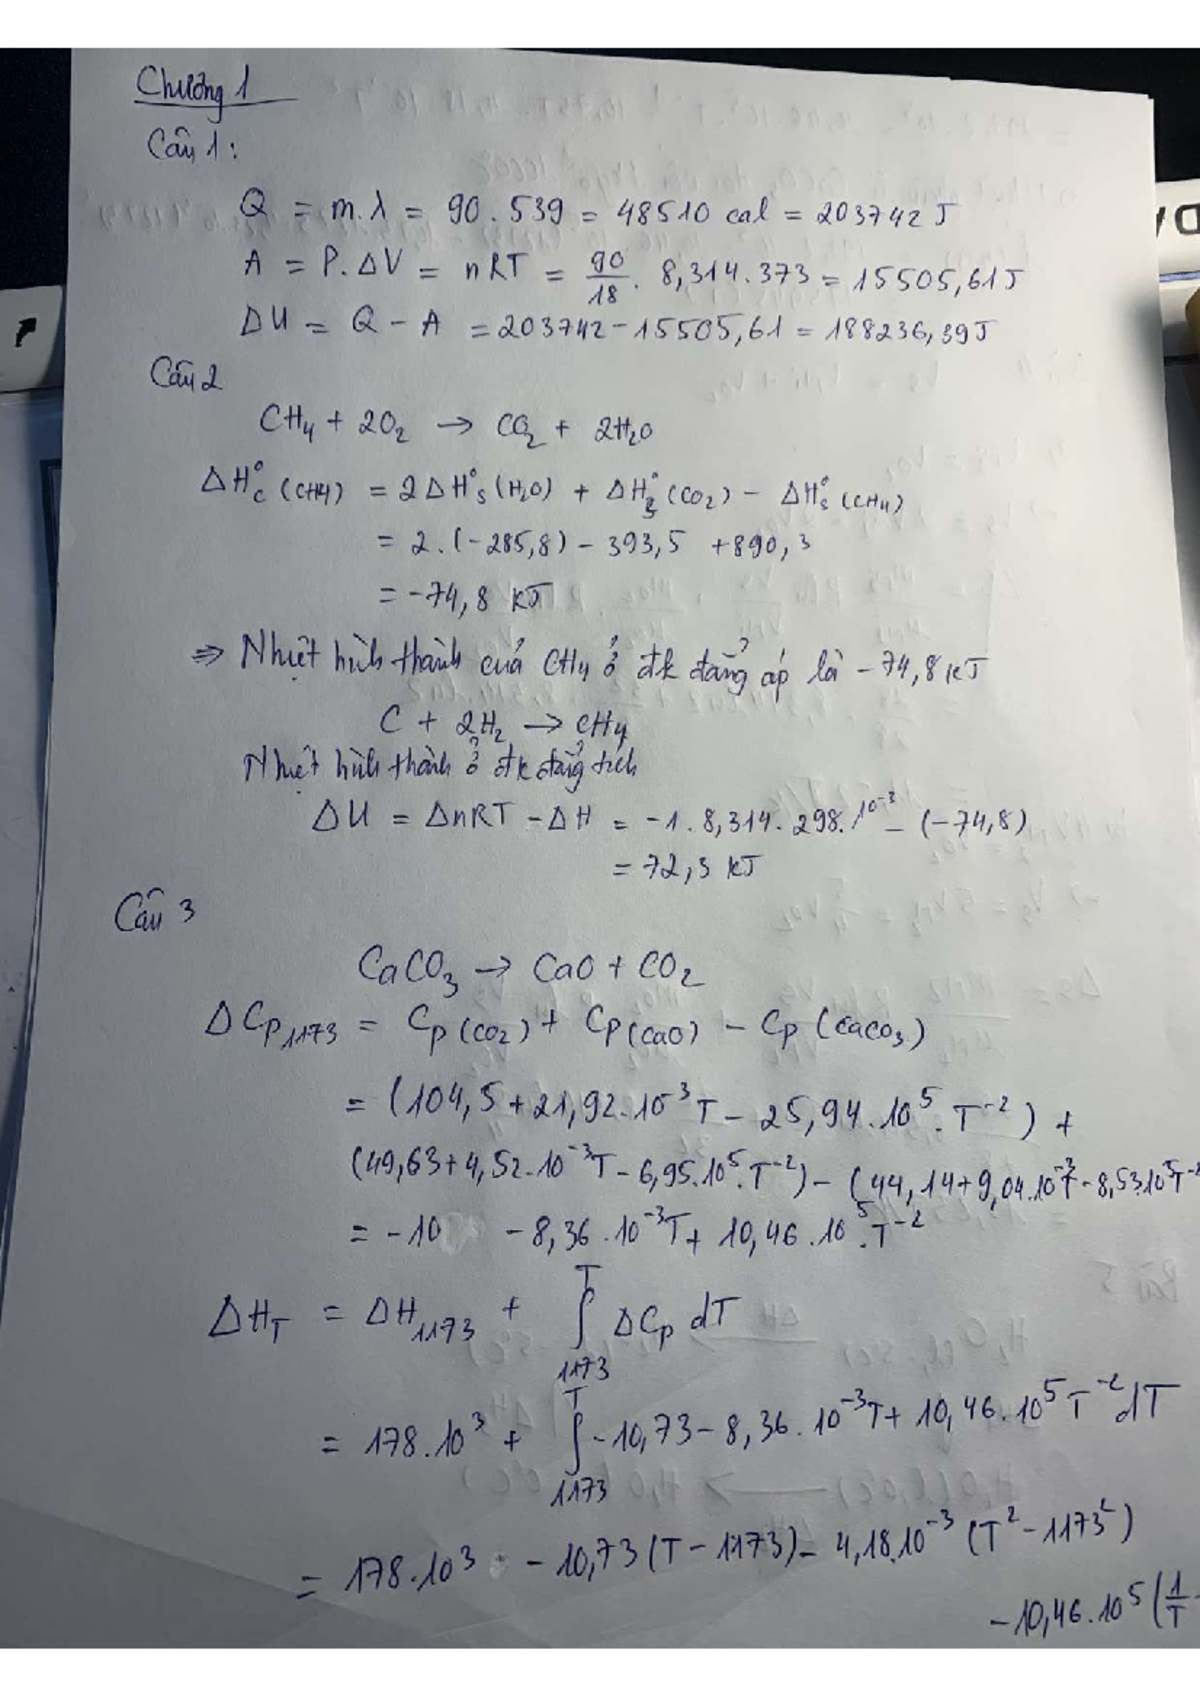 Chương 1
Câu 1:
Q = m.λ = 90.539 = 48510 cal = 203742 J
A = P.ΔV = nRT = 90/18 . 8,314.373 = 15505,61J
ΔU = Q - A = 203742-15505,61 = 188236,39J
Câu 2
CH4 + 2O2 → CO2 + 2H2O
ΔH°c (CH4) = 2ΔH°s (H2O) + ΔH°s (CO2) - ΔH°s (CH4)
= 2.(-285,8) - 393,5 + 890,3
= -74,8 KJ
⇒ Nhiệt hình thành của CH4 ở đk đẳng áp là -74,8 KJ
C + 2H2 → CH4
Nhiệt hình thành ở đk đẳng tích
ΔU = ΔnRT - ΔH = -1. 8,314. 298. 10^-3 - (-74,8)
= 72,3 KJ
Câu 3
CaCO3 → CaO + CO2
ΔCp1173 = Cp (CO2) + Cp (CaO) - Cp (CaCO3)
= (104,5 + 21,92.10^-3 T - 25,94.10^5. T^-2) +
(49,63+4,52.10^-3 T - 6,95.10^5. T^-2) - (44,14+9,04.10^-3 T - 8,53.10^5 T^-2
= -10 - 8,36.10^-3 T + 10,46.10^5. T^-2
ΔHT = ΔH1173 + ∫1173^T ΔCp dT
= 178.10^3 + ∫1173^T -10,73 - 8,36.10^-3 T + 10,46.10^5 T^-2 dT
= 178.10^3 - 10,73 (T - 1173) - 4,18.10^-3 (T^2 - 1173^2)
- 10,46.10^5 (1/T -